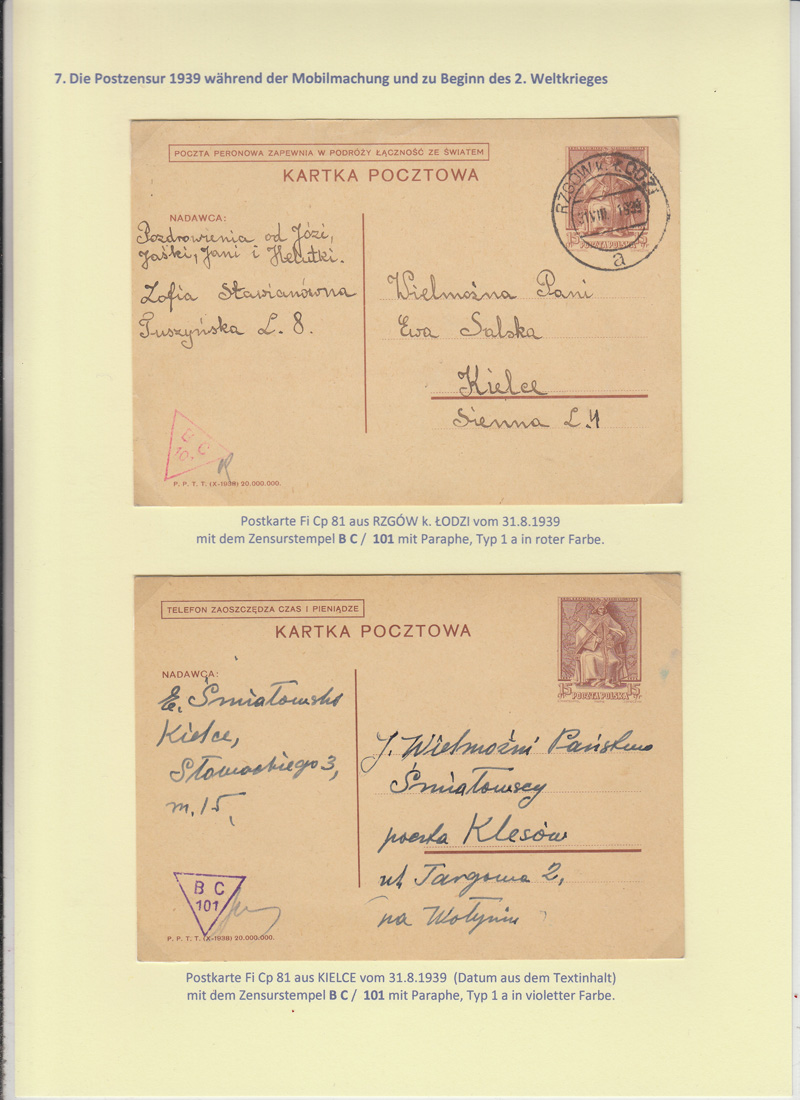 7. Die Postzensur 1939 während der Mobilmachung und zu Beginn des 2. Weltkrieges
POCZTA PERONOWA ZAPEWNIA W PODRÓŻY ŁĄCZNOŚĆ ZE ŚWIATEM
KARTKA POCZTOWA
RZGÓW k. ŁODZI
31 VIII 1939
a
15 POCZTA POLSKA 15
NADAWCA:
Pozdrowienia od Józi,
Jaśki, Jani i Helutki.
Zofia Stawianówna
Tuszyńska L. 8.
Wielmożna Pani
Ewa Salska
Kielce
Sienna L.
B C
10
P. P. T. T. (X-1938) 20.000.000.
Postkarte Fi Cp 81 aus RZGÓW k. ŁODZI vom 31.8.1939
mit dem Zensurstempel B C / 101 mit Paraphe, Typ 1 a in roter Farbe.
TELEFON ZAOSZCZĘDZA CZAS I PIENIĄDZE
KARTKA POCZTOWA
15 POCZTA POLSKA 15
NADAWCA:
E. Śmiałowska
Kielce,
Słowackiego 3,
m. 15,
J. Wielmożni Państwo
Śmiałowscy
poczta Klesów
ul. Targowa 2,
na Wołyniu
B C
101
P. P. T. T. (X-1938) 20.000.000.
Postkarte Fi Cp 81 aus KIELCE vom 31.8.1939 (Datum aus dem Textinhalt)
mit dem Zensurstempel B C / 101 mit Paraphe, Typ 1 a in violetter Farbe.